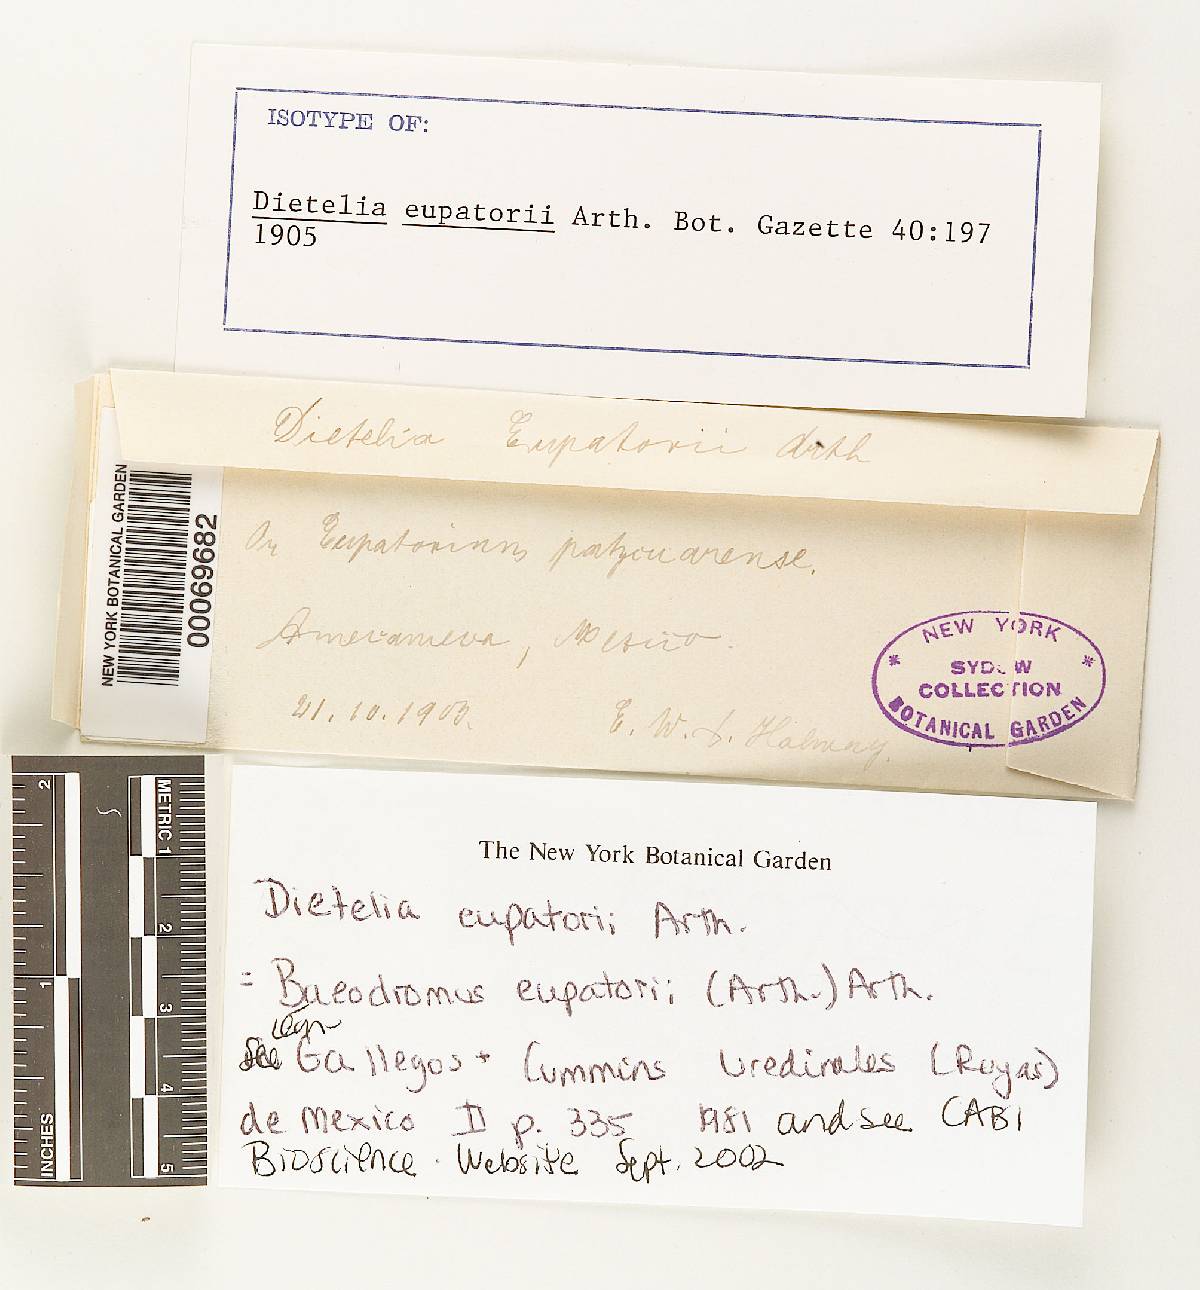 ISOTYPE OF:
Dietelia eupatorii Arth. Bot. Gazette 40:197
1905
Dietelia Eupatorii Arth
On Eupatorium patzcuarense.
Amecameca, Mexico.
21.10.1903.
E. W. D. Holway.
NEW YORK BOTANICAL GARDEN
00069682
NEW YORK
SYDOW
COLLECTION
BOTANICAL GARDEN
2
1
INCHES
METRIC 1
2
3
4
5
The New York Botanical Garden
Dietelia eupatorii Arth.
= Baeodromus eupatorii (Arth.) Arth.
León
see Gallegos + Cummins Uredinales (Royas)
de Mexico II p. 335 1981 and see CABI
Bioscience. Website Sept. 2002